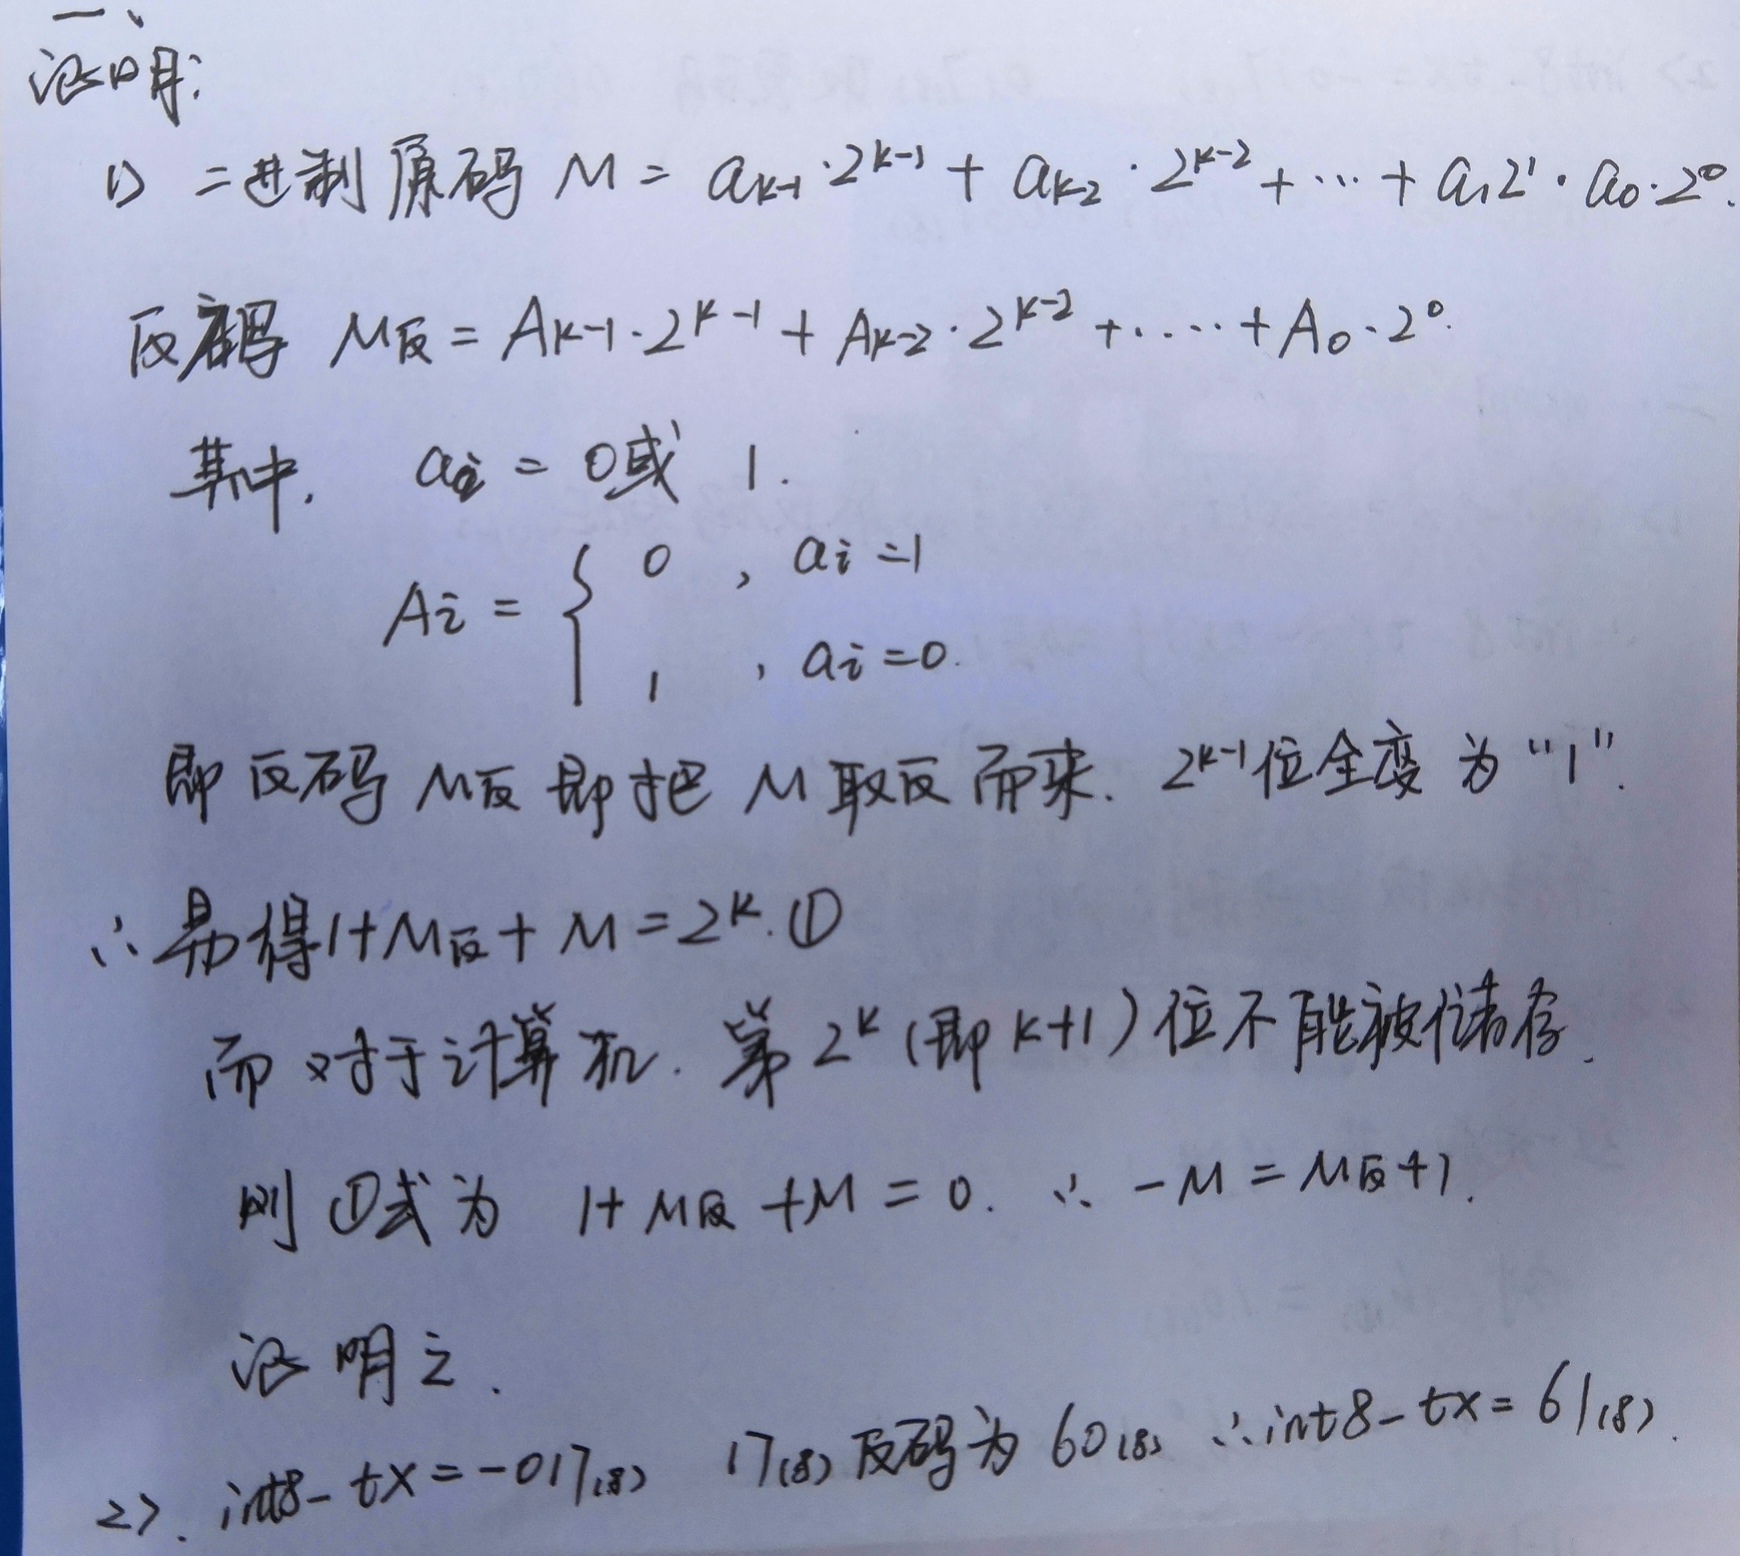 一、
证明:
1> 二进制原码 M = aₖ₋₁·2ᵏ⁻¹ + aₖ₋₂·2ᵏ⁻² + … + a₁2¹·a₀·2⁰.
反码 M反 = Aₖ₋₁·2ᵏ⁻¹ + Aₖ₋₂·2ᵏ⁻² + ..... + A₀·2⁰.
其中, aᵢ = 0或 1.
Aᵢ = { 0 , aᵢ=1
1 , aᵢ=0.
即反码 M反 即把 M 取反而来. 2ᵏ⁻¹位全变为“1”.
∴ 易得1+M反+M=2ᵏ.①
而对于计算机. 第2ᵏ(即k+1)位不能被储存.
则①式为 1+M反+M=0. ∴ -M=M反+1.
证明之.
2>. int8-tx=-017₍₈₎ 17₍₈₎反码为 60₍₈₎ ∴int8-tx=61₍₈₎.